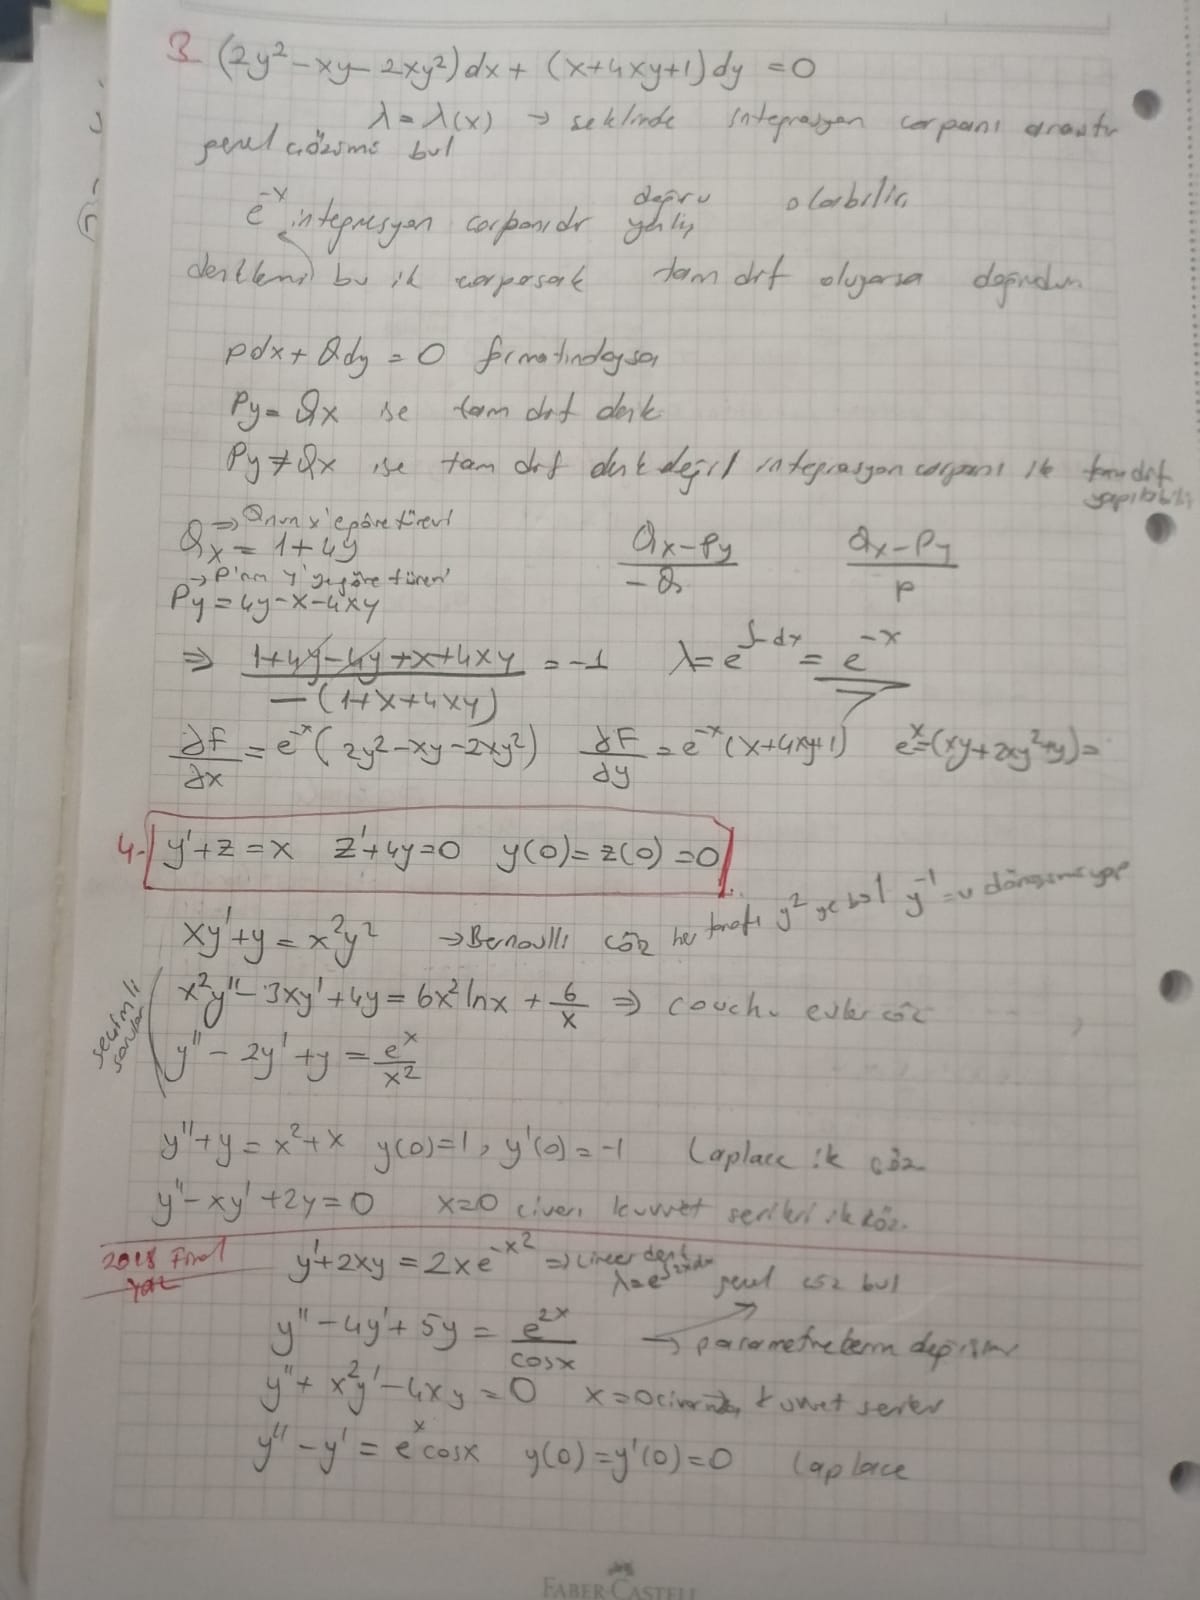 3 (2y²-xy-2xy²)dx+ (x+4xy+1)dy =0
λ=λ(x) → seklinde integrasyon carpanı arastır
genel çözümü bul
e⁻ˣ integrasyon carpanıdır doğru yanlış olabilir.
denklemi bu ile carparsak tam drf oluyorsa doğrudur
pdx+Qdy=0 formatındaysa
Py=Qx ise tam drf denk
Py≠Qx ise tam drf denk değil integrasyon carpanı ile tam drf yapılabilir
⇒ Qnun x'e göre türevi
Qx=1+4y
→ P'nın y'ye göre türevi
Py=4y-x-4xy
(Qx-Py)/(-Q) (Qx-Py)/P
⇒ (1+4y-4y+x+4xy)/(-(1+x+4xy)) =-1 λ=e^(∫-dx)=e⁻ˣ
∂F/∂x=e⁻ˣ(2y²-xy-2xy²) ∂F/∂y=e⁻ˣ(x+4xy+1) e⁻ˣ(xy+2xy²+y)=
4- y'+z=x z'+4y=0 y(0)=z(0)=0
xy'+y=x²y² →Bernoulli çöz her tarafı y² ye böl y⁻¹=u dönüşümü yap
seçimli sorular
x²y''-3xy'+4y=6x²lnx+6/x ⇒ couchy euler çöz
y''-2y'+y=eˣ/x²
y''+y=x²+x y(0)=1, y'(0)=-1 Laplace ile çöz
y''-xy'+2y=0 x=0 civarı kuvvet serileri ile çöz.
2018 Final
y'+2xy=2xe^(-x²) ⇒Lineer denk λ=e^(∫2xdx) genel çöz bul
y''-4y'+5y=e²ˣ/cosx → parametrelerin değişimi
y''+x²y'-4xy=0 x=0 civarında kuvvet serileri
y''-y'=eˣcosx y(0)=y'(0)=0 Laplace
FABER-CASTELL